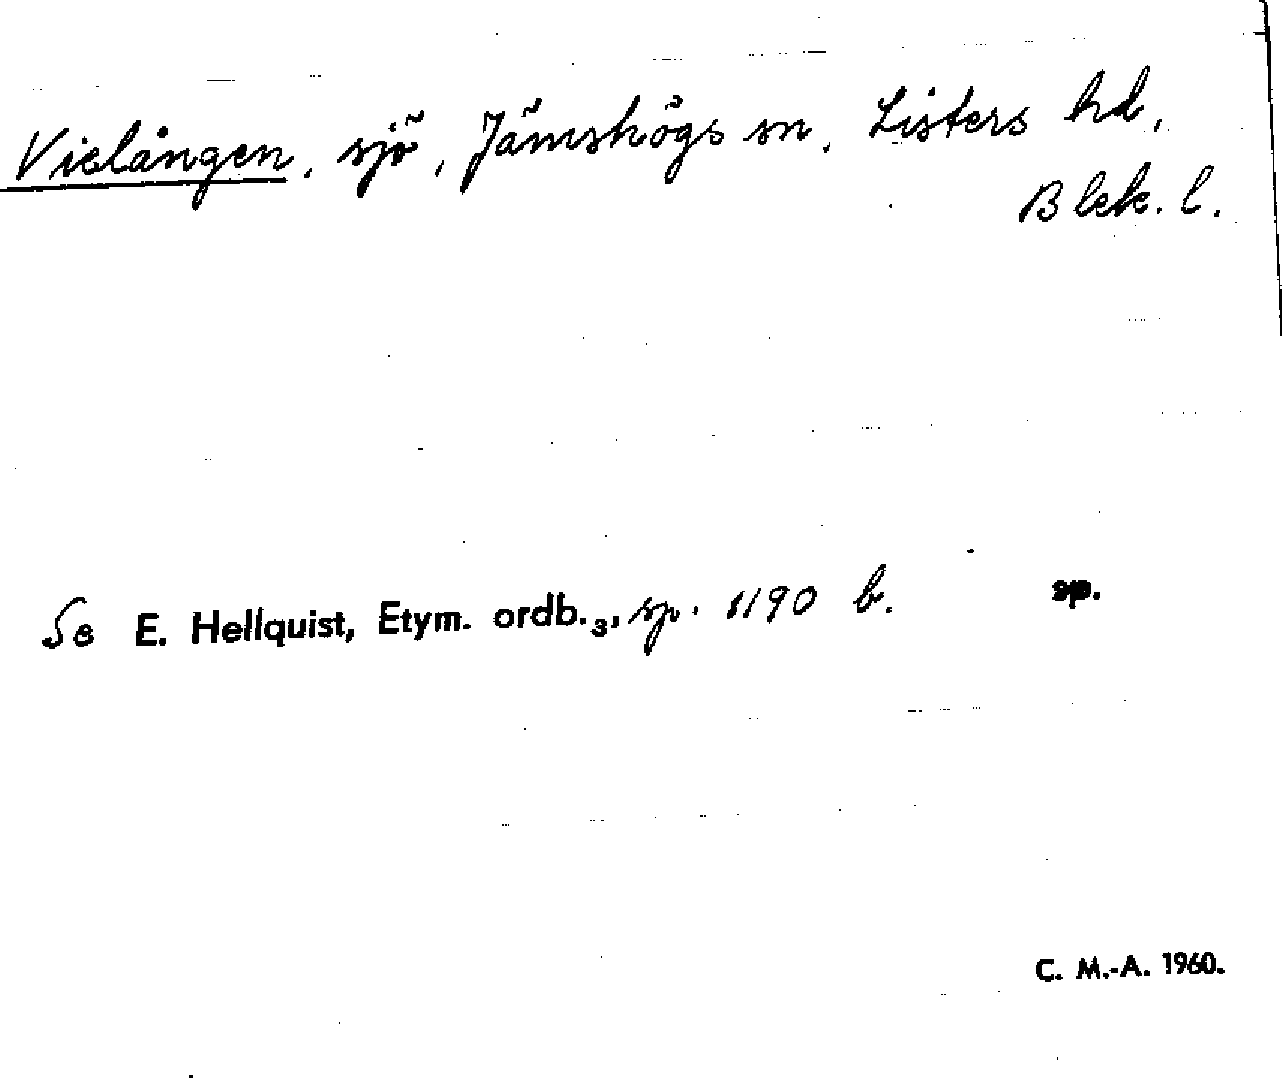 Vielången, sjö, Jämshögs sn, Listers hd,
Blek. l.
Se E. Hellquist, Etym. ordb.₃, sp. 1190 b. sp.
C. M.-A. 1960.